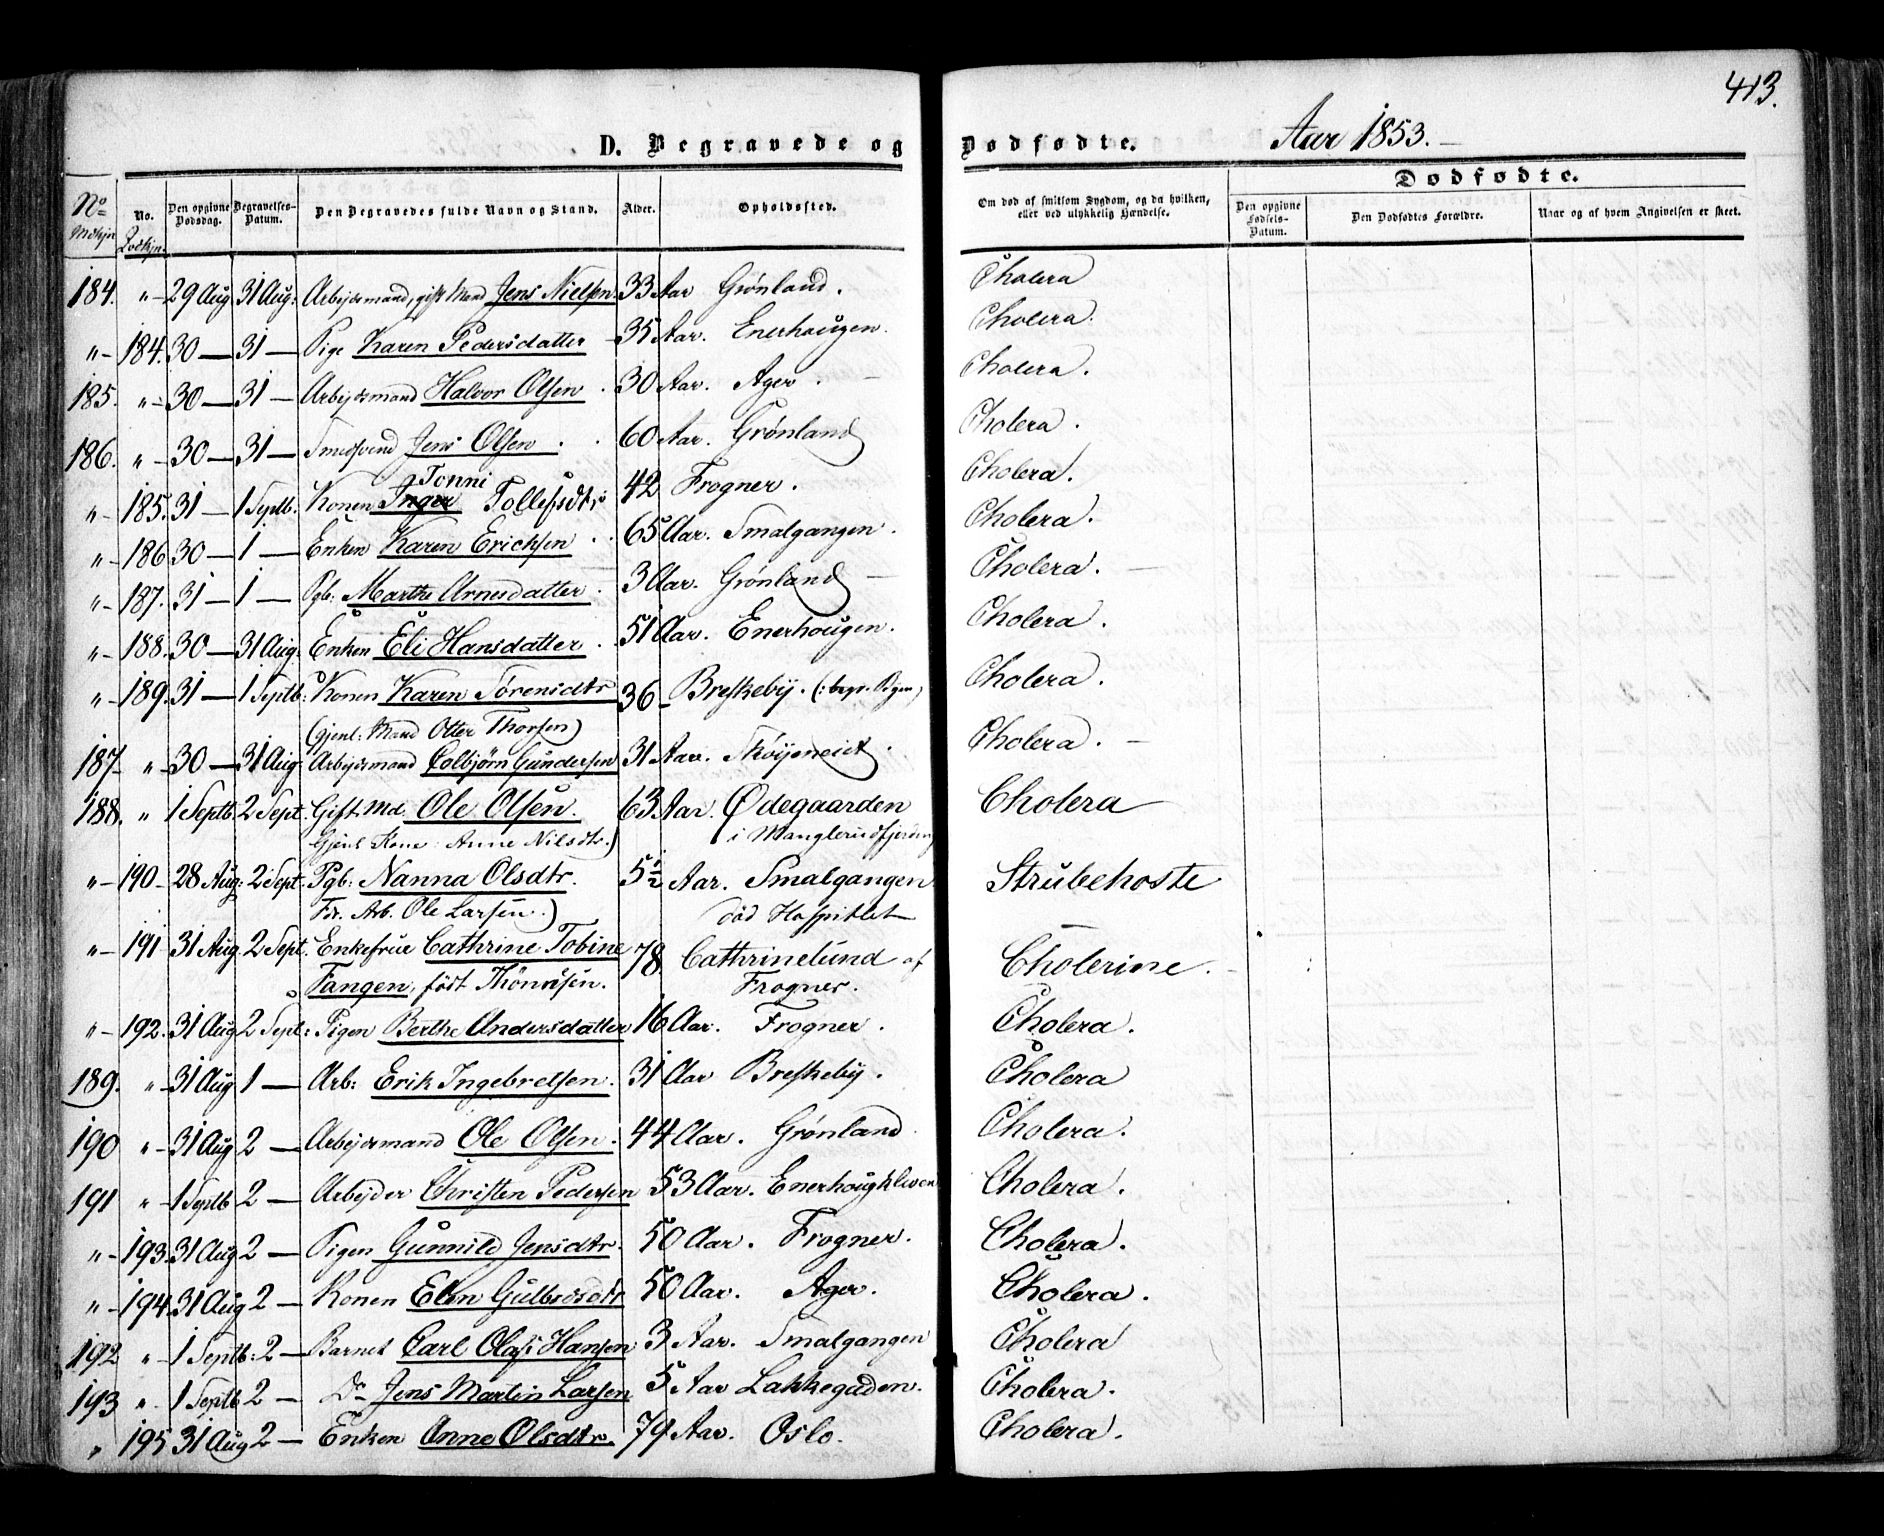 413.
D. Begravede og Dødfødte. Aar 1853.
Dødfødte.
No Mdkjn
No. Qvdkjn.
Den opgivne Dødsdag.
Begravelses-Datum.
Den Begravedes fulde Navn og Stand.
Alder.
Opholdssted.
Om død af smitsom Sygdom, og da hvilken, eller ved ulykkelig Hændelse.
Den opgivne Fødsels-Datum.
Den Dødfødtes Forældre.
Naar og af hvem Angivelsen er skeet.
184. " 29 Aug 31 Aug. Arbejdsmand, gift Mand Jens Nielsen. 33 Aar Grønland. Cholera
" 184. 30 — 31 — Pige Karen Pedersdatter 35 Aar. Enerhaugen. Cholera.
185. " 30 — 31 — Arbejdsmand Halvor Olsen. 30 Aar. Ager. Cholera.
186. " 30 — 31 — Smedsvend Jens Olsen. 60 Aar. Grønland Cholera.
Tonni
" 185. 31 — 1 Septb. Konen Inger Tollefsdtr 42 Frogner. Cholera.
" 186 30 — 1 — Enken Karen Ericksen 65 Aar. Smalgangen. Cholera.
" 187. 31 — 1 — Pgb: Marthe Arnesdatter. 3 Aar. Grønland — Cholera. —
" 188. 30 — 31 Aug. Enken Eli Hansdatter. 51 Aar. Enerhougen. Cholera.
" 189. 31 — 1 Septb: Konen Karen Sørensdtr 36 Breskeby. (: begr. Pigen) Cholera.
(gjenl. Mand Otter Thorsen)
187 " 30 — 31 Aug Arbejdsmand Colbjørn Gundersen 31 Aar. Skøijeneiet. Cholera. —
188. " 1 Septb. 2 Sept. Gift Md. Ole Olsen. 63 Aar. Ødegaarden Cholera
Gjenl Kone: Anne Nilsdtr.) i Manglerudfjerding
" 190 28 Aug: 2 Sept. Pgb: Nanna Olsdtr. 5½ Aar. Smalgangen Strubehoste
Fr. Arb. Ole Larsen.) død Hospitlet
" 191 31 Aug. 2 Sept. Enkefrue Cathrine Tobine 78 Cathrinelund af Cholerine.
Tangen, født Thønnesen. Frogner.
" 192. 31 Aug 2 Sept: Pigen Berthe Andersdatter 16 Aar. Frogner. Cholera.
189. " 31 Aug 1 — Arb: Erik Ingebretsen. 31 Aar Breskeby. Cholera
190 " 31 Aug 2 — Arbejdsmand Ole Olsen. 44 Aar. Grønland. Cholera.
191 " 1 Septb 2 — Arbejder Christen Pedersen 53 Aar. Enerhoughleven Cholera.
" 193. 31 Aug 2 — Pigen Gunnild Jensdtr. 50 Aar. Frogner. Cholera.
" 194. 31 Aug 2 — Konen Elen Gulbrdsdtr 50 Aar. Ager. Cholera.
192 " 1 Septb: 2 — Barnet Carl Olafs Hansen 3 Aar. Smalgangen Cholera
193 " 1 Septb 2 — Do Jens Martin Larsen 5 Aar Lakkegaden. Cholera.
" 195 31 Aug 2 — Enken Anne Olsdtr. 79 Aar. Oslo. Cholera.